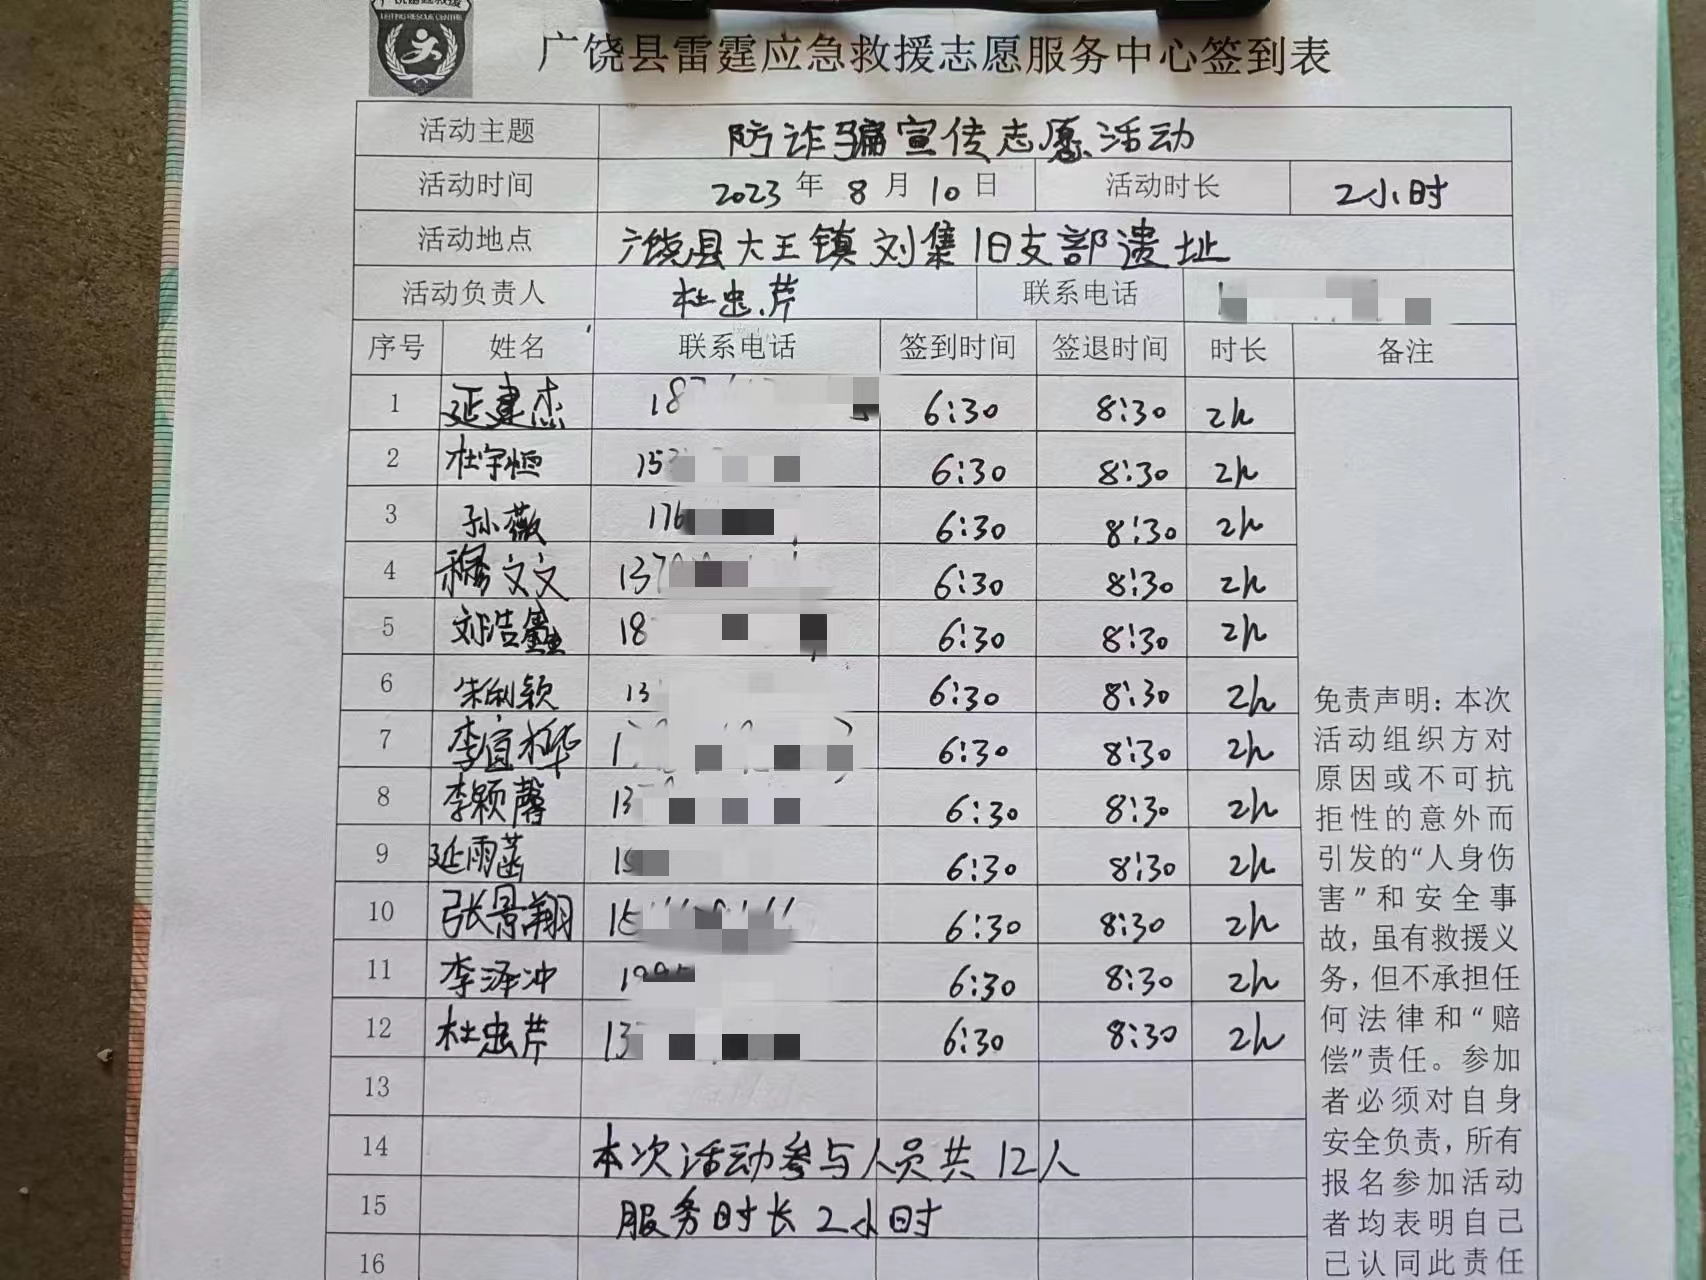 广饶雷霆救援
LEITING RESCUE CENTRE
广饶县雷霆应急救援志愿服务中心签到表
活动主题 防诈骗宣传志愿活动
活动时间 2023年8月10日 活动时长 2小时
活动地点 广饶县大王镇刘集旧支部遗址
活动负责人 杜忠芹 联系电话
序号 姓名 联系电话 签到时间 签退时间 时长 备注
1 延建杰 18 6:30 8:30 2h
2 杜宇恒 15 6:30 8:30 2h
3 孙薇 176 6:30 8:30 2h
4 穆文文 137 6:30 8:30 2h
5 刘浩鑫 18 6:30 8:30 2h
6 朱俐颖 13 6:30 8:30 2h
7 李宜桦 1 6:30 8:30 2h
8 李颖馨 13 6:30 8:30 2h
9 延雨菡 15 6:30 8:30 2h
10 张景翔 15 6:30 8:30 2h
11 李泽冲 199 6:30 8:30 2h
12 杜忠芹 13 6:30 8:30 2h
13
14 本次活动参与人员共12人
15 服务时长2小时
16
免责声明：本次
活动组织方对
原因或不可抗
拒性的意外而
引发的“人身伤
害”和安全事
故，虽有救援义
务，但不承担任
何法律和“赔
偿”责任。参加
者必须对自身
安全负责，所有
报名参加活动
者均表明自己
已认同此责任